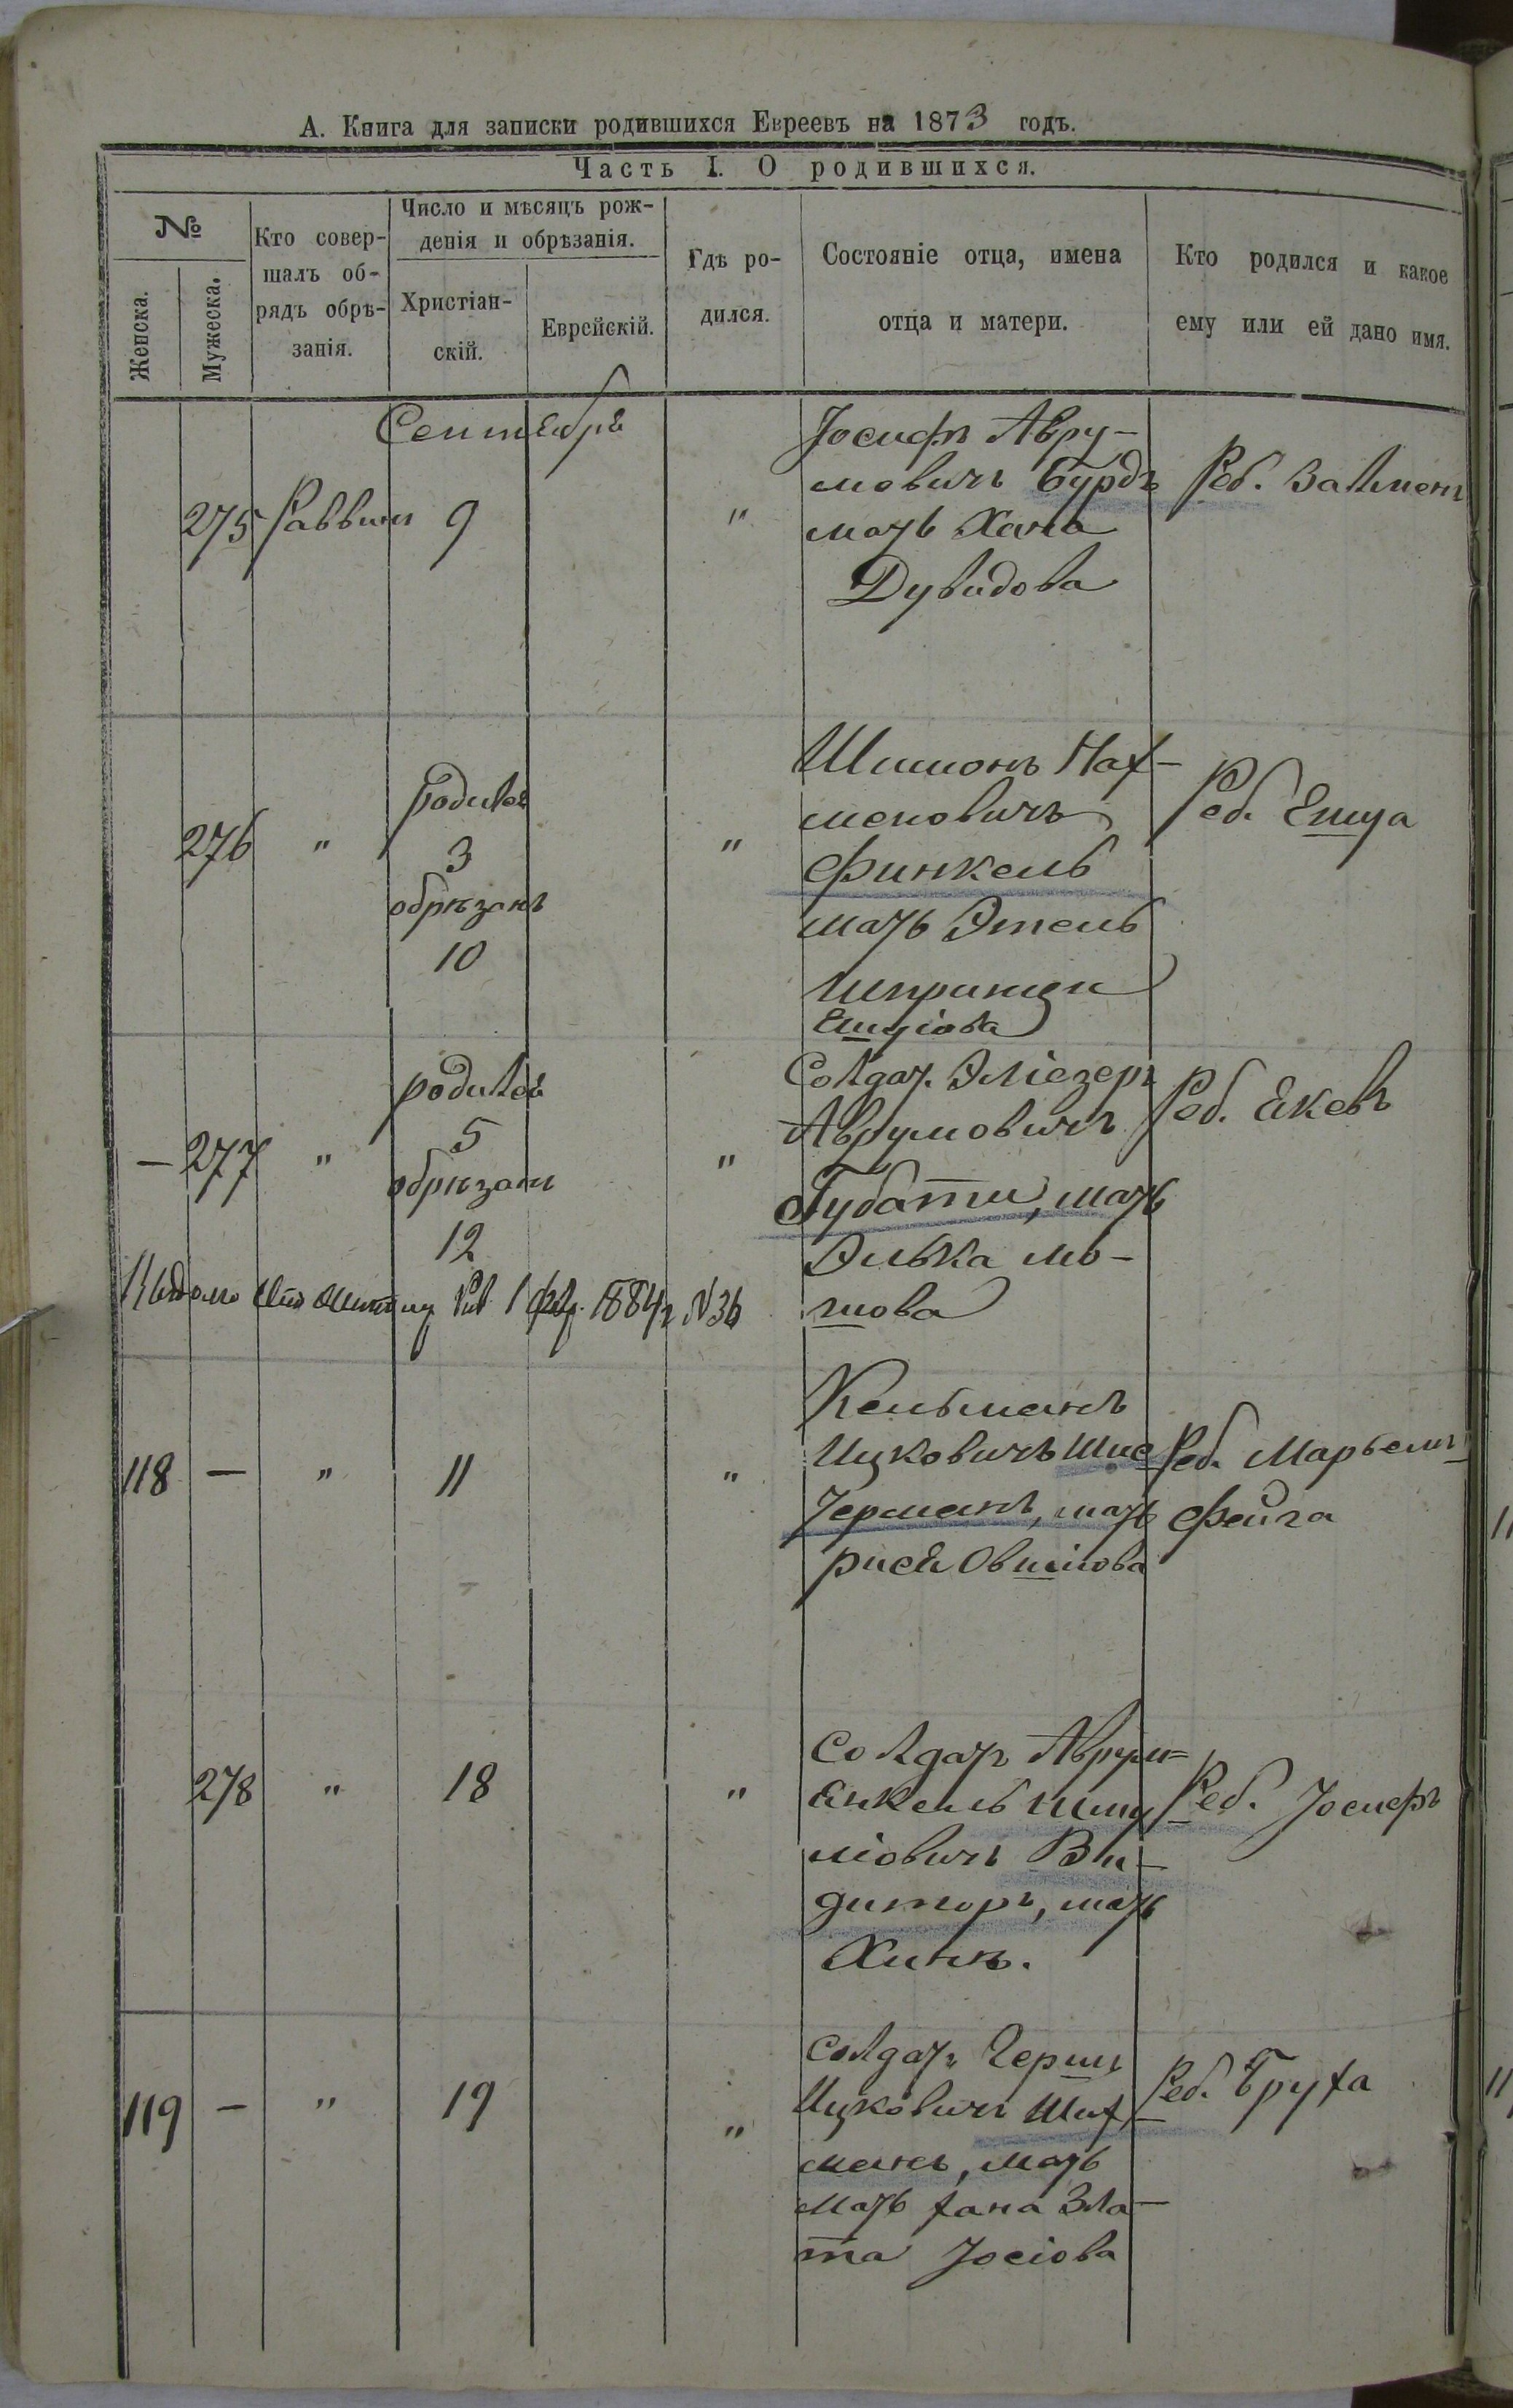 А. Книга для записки родившихся Евреевъ на 1873 годъ.
Часть I. О родившихся.
№
Женска.
Мужеска.
Кто совер-
шалъ об-
рядъ обрѣ-
занія.
Число и мѣсяцъ рож-
денія и обрѣзанія.
Христіан-
скій.
Еврейскій.
Гдѣ ро-
дился.
Состояніе отца, имена
отца и матери.
Кто родился и какое
ему или ей дано имя.
Сентябрь
275 Раввинъ 9 "
Іосифъ Авру-
мовичъ Бурдъ
мать Хана
Дувидова
Реб. Залменъ
276 "
родился
3
обрѣзанъ
10
"
Шимонъ Нах-
меновичъ
Финкель
мать Этель
Шпринци
Ешуіова
Реб. Ешуа
— 277 "
родился
5
обрѣзанъ
12
"
Солдат. Эліезеръ
Аврумовичъ
Губатти, мать
Элька Мо-
шова
Реб. Якевъ
1 фев. 1884 г N 36
118 — " 11 "
Кельманъ
Ицковичъ Шис
Германъ, мать
Рися Овшіова
Реб. Марьемъ
Фейга
278 " 18 "
Солдатъ Аврум=
Янкель Шму
ліовичъ Ви-
диторъ, мать
Хинъ.
Реб. Іосифъ
119 — " 19 "
Солдатъ Герш
Ицковичъ Ших
манъ, мать
мать Хана Зла-
та Іосіова
Реб. Бруха